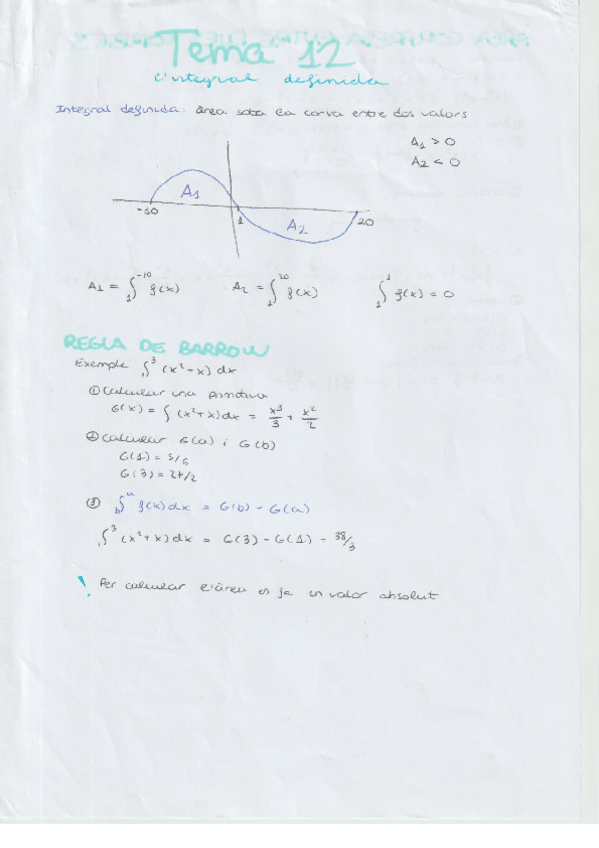 Tema 12
L'integral definida
Integral definida: àrea sota la corva entre dos valors
A₁ > 0
A₂ < 0
A₁
-10
1
A₂
20
A₁ = ∫₁⁻¹⁰ f(x)
A₂ = ∫₁²⁰ f(x)
∫₁¹ f(x) = 0
REGLA DE BARROW
Exemple ∫₁³ (x² + x) dx
① Calcular una primitiva
G(x) = ∫ (x² + x) dx = x³/3 + x²/2
② Calcular G(a) i G(b)
G(1) = 5/6
G(3) = 27/2
③ ∫ᵇᵃ f(x) dx = G(b) - G(a)
∫₁³ (x² + x) dx = G(3) - G(1) - 38/3
! Per calcular l'àrea es fa en valor absolut.